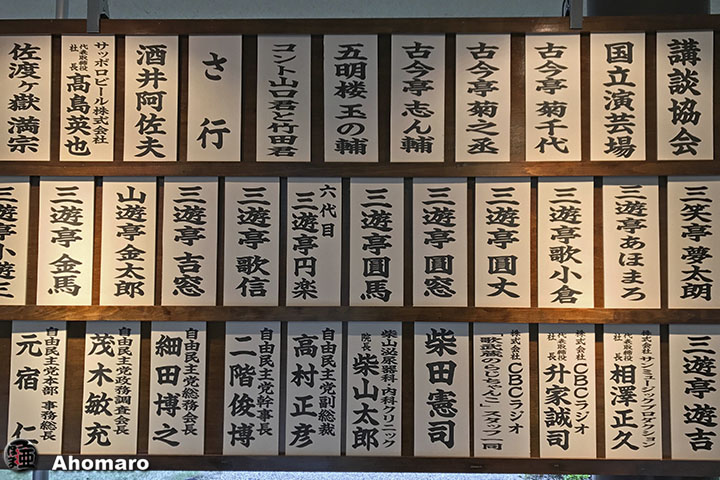 講談協会
国立演芸場
古今亭 菊千代
古今亭 菊之丞
古今亭 志ん輔
五明楼 玉の輔
コント山口君と竹田君
さ行
酒井阿佐夫
サッポロビール株式会社
代表取締役
社長
高島英也
佐渡ヶ嶽 満宗
三笑亭 夢太朗
三遊亭あほまろ
三遊亭 歌小倉
三遊亭 圓丈
三遊亭 圓窓
三遊亭 圓馬
六代目
三遊亭円楽
三遊亭 歌信
三遊亭 吉窓
山遊亭 金太郎
三遊亭 金馬
三遊亭 小遊三
三遊亭 遊吉
株式会社 サンミュージックプロダクション
代表取締役
社長
相澤正久
株式会社 CBCラジオ
代表取締役
社長
升家誠司
株式会社 CBCラジオ
スタッフ一同
柴田憲司
柴山泌尿器科・内科クリニック
院長 柴山太郎
自由民主党副総裁
高村正彦
自由民主党幹事長
二階俊博
自由民主党総務会長
細田博之
自由民主党政務調査会長
茂木敏充
自由民主党本部 事務総長
元宿 仁
Ahomaro